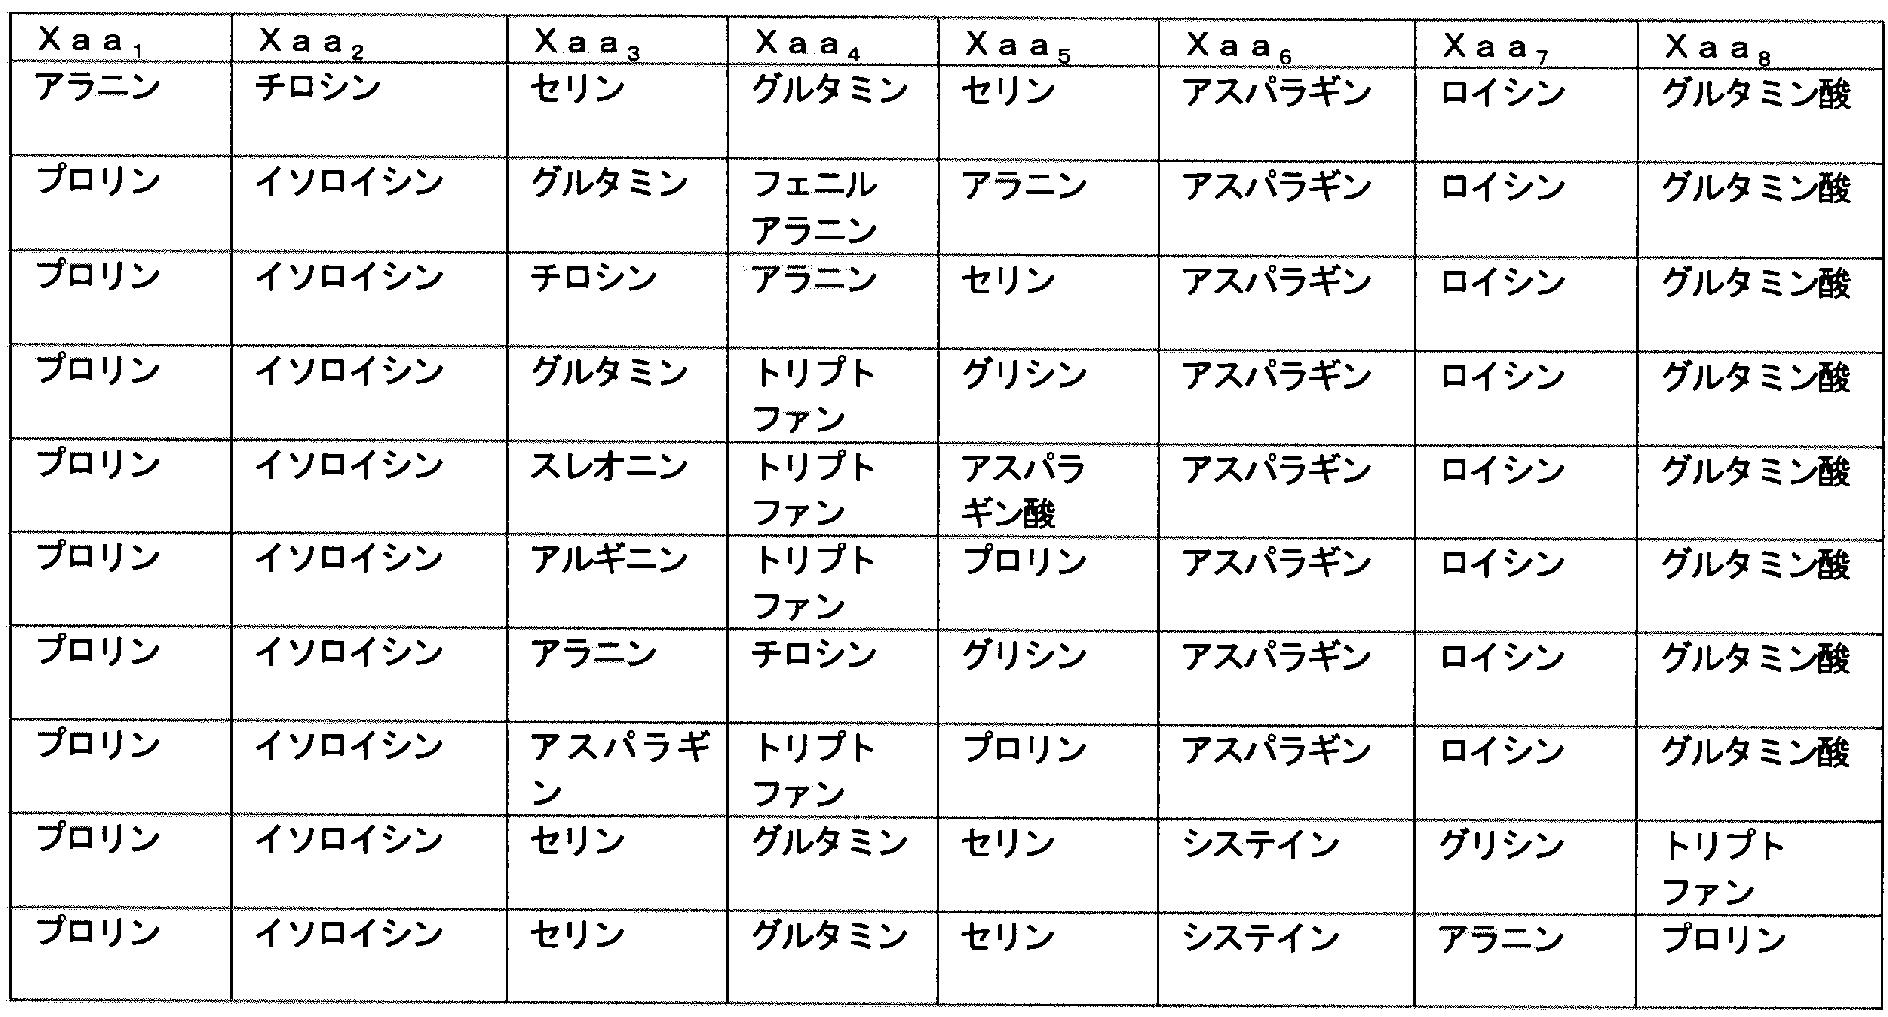 Xaa₁ Xaa₂ Xaa₃ Xaa₄ Xaa₅ Xaa₆ Xaa₇ Xaa₈
アラニン チロシン セリン グルタミン セリン アスパラギン ロイシン グルタミン酸
プロリン イソロイシン グルタミン フェニル アラニン アスパラギン ロイシン グルタミン酸
アラニン
プロリン イソロイシン チロシン アラニン セリン アスパラギン ロイシン グルタミン酸
プロリン イソロイシン グルタミン トリプト グリシン アスパラギン ロイシン グルタミン酸
ファン
プロリン イソロイシン スレオニン トリプト アスパラ アスパラギン ロイシン グルタミン酸
ファン ギン酸
プロリン イソロイシン アルギニン トリプト プロリン アスパラギン ロイシン グルタミン酸
ファン
プロリン イソロイシン アラニン チロシン グリシン アスパラギン ロイシン グルタミン酸
プロリン イソロイシン アスパラギ トリプト プロリン アスパラギン ロイシン グルタミン酸
ン ファン
プロリン イソロイシン セリン グルタミン セリン システイン グリシン トリプト
ファン
プロリン イソロイシン セリン グルタミン セリン システイン アラニン プロリン